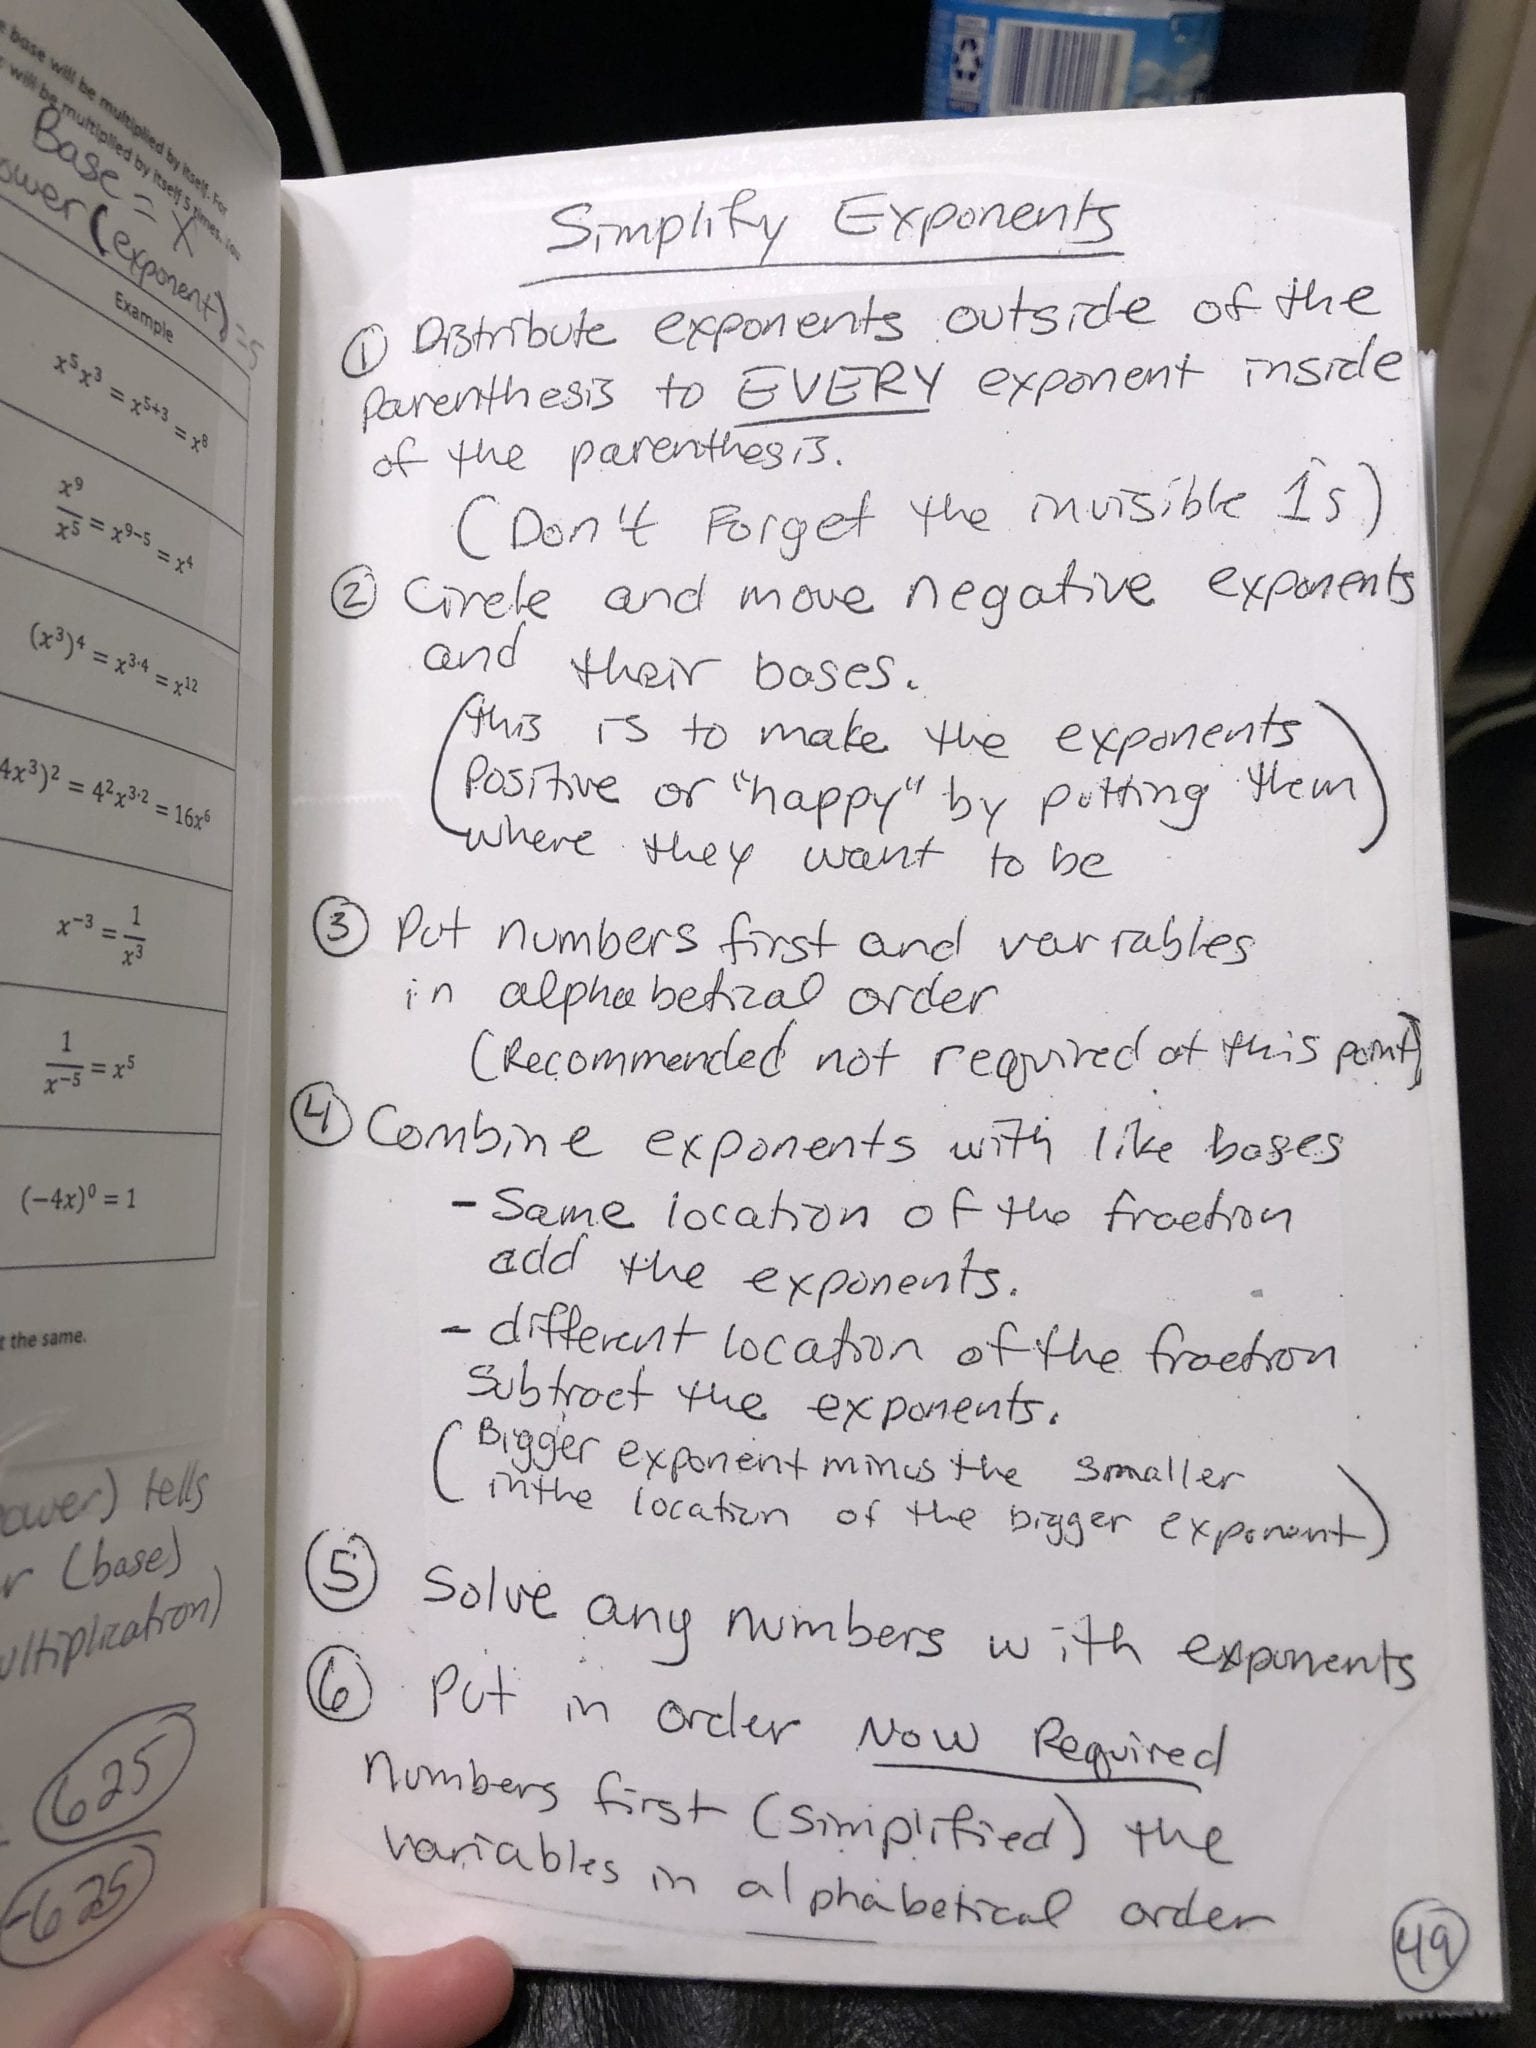 e base will be multiplied by itself. For
will be multiplied by itself 5 times. You
Base = X
ower (exponent) = 5
Example
x⁵x³ = x⁵⁺³ = x⁸
x⁹/x⁵ = x⁹⁻⁵ = x⁴
(x³)⁴ = x³·⁴ = x¹²
4x³)² = 4²x³·² = 16x⁶
x⁻³ = 1/x³
1/x⁻⁵ = x⁵
(−4x)⁰ = 1
t the same.
ower) tells
r (base)
ultiplication)
625
-625
Simplify Exponents
① Distribute exponents outside of the
parenthesis to EVERY exponent inside
of the parenthesis.
(Don't Forget the invisible 1s)
② Circle and move negative exponents
and their bases.
(this is to make the exponents
Positive or "happy" by putting them
where they want to be)
③ Put numbers first and variables
in alphabetical order
(Recommended not required at this point)
④ Combine exponents with like bases
- Same location of the fraction
add the exponents.
- different location of the fraction
Subtract the exponents.
(Bigger exponent minus the smaller
in the location of the bigger exponent)
⑤ Solve any numbers with exponents
⑥ Put in order Now Required
Numbers first (simplified) the
variables in alphabetical order
49